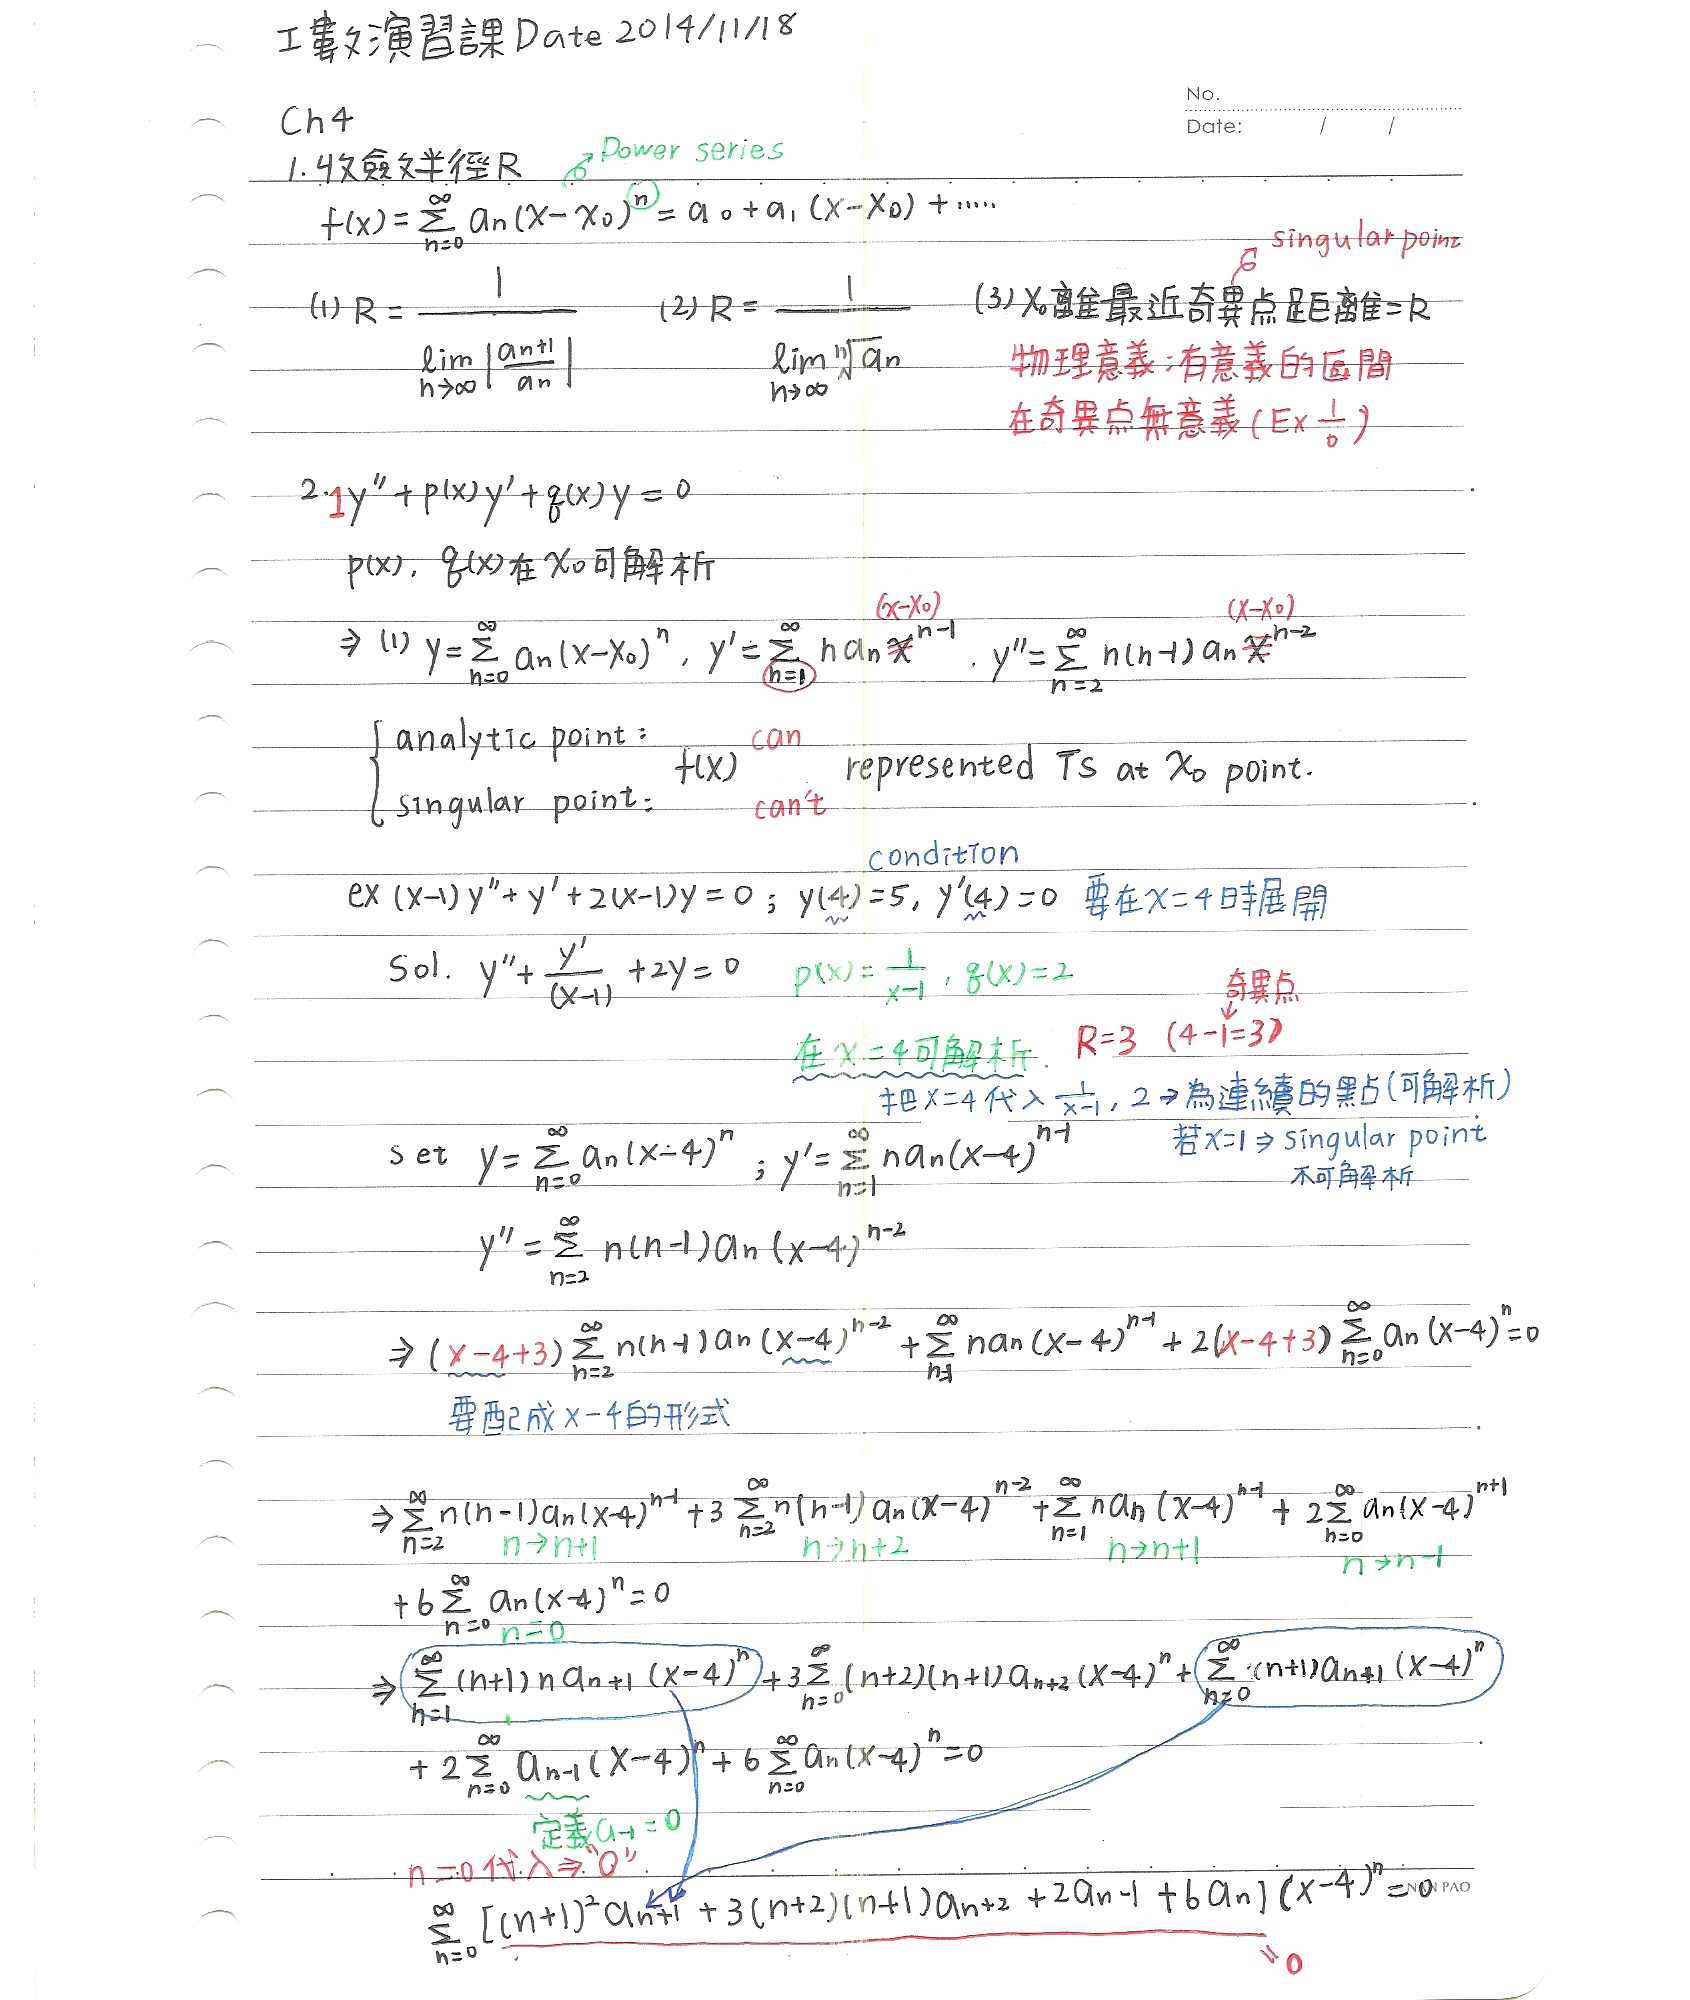 工數演習課 Date 2014/11/18
No.
Date: / /
Ch4
1. 收斂半徑 R
Power series
f(x) = ∑_{n=0}^{∞} an(x-x0)^n = a0 + a1(x-x0) + .....
singular point
(1) R = 1 / lim_{n→∞} |an+1 / an| (2) R = 1 / lim_{n→∞} ⁿ√an (3) x0離最近奇異点距離 = R
物理意義:有意義的區間
在奇異点無意義 (Ex 1/0)
2. 1y'' + p(x)y' + q(x)y = 0
p(x), q(x) 在 x0 可解析
(x-x0) (x-x0)
⇒ (1) y = ∑_{n=0}^{∞} an(x-x0)^n, y' = ∑_{n=1}^{∞} n an x^{n-1}, y'' = ∑_{n=2}^{∞} n(n-1) an x^{n-2}
analytic point: can
f(x) represented TS at x0 point.
singular point: can't
condition
ex (x-1)y'' + y' + 2(x-1)y = 0 ; y(4) = 5, y'(4) = 0 要在 x=4 時展開
Sol. y'' + y'/(x-1) + 2y = 0 p(x) = 1/(x-1), q(x) = 2
奇異点
在 x=4 可解析. R=3 (4-1=3)
把 x=4 代入 1/(x-1), 2 → 為連續的點 (可解析)
若 x=1 ⇒ singular point
不可解析
set y = ∑_{n=0}^{∞} an(x-4)^n ; y' = ∑_{n=1}^{∞} nan(x-4)^{n-1}
y'' = ∑_{n=2}^{∞} n(n-1)an(x-4)^{n-2}
⇒ (x-4+3) ∑_{n=2}^{∞} n(n-1)an(x-4)^{n-2} + ∑_{n=1}^{∞} nan(x-4)^{n-1} + 2(x-4+3) ∑_{n=0}^{∞} an(x-4)^n = 0
要配成 x-4 的形式
⇒ ∑_{n=2}^{∞} n(n-1)an(x-4)^{n-1} + 3 ∑_{n=2}^{∞} n(n-1)an(x-4)^{n-2} + ∑_{n=1}^{∞} nan(x-4)^{n-1} + 2 ∑_{n=0}^{∞} an(x-4)^{n+1}
n→n+1 n→n+2 n→n+1 n→n-1
+ 6 ∑_{n=0}^{∞} an(x-4)^n = 0
n=0
⇒ ∑_{n=1}^{∞} (n+1)n an+1(x-4)^n + 3 ∑_{n=0}^{∞} (n+2)(n+1)an+2(x-4)^n + ∑_{n=0}^{∞} (n+1)an+1(x-4)^n
+ 2 ∑_{n=0}^{∞} an-1(x-4)^n + 6 ∑_{n=0}^{∞} an(x-4)^n = 0
定義 a-1 = 0
n=0 代入 ⇒ "0"
∑_{n=0}^{∞} [(n+1)^2 an+1 + 3(n+2)(n+1)an+2 + 2an-1 + 6an](x-4)^n = 0
NAN PAO
" 0